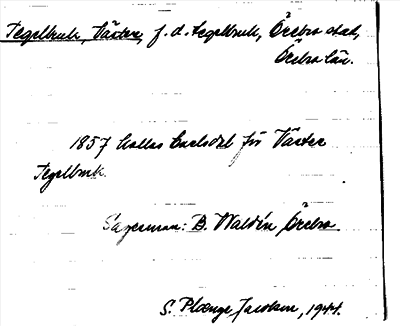 Tegelbruk, Väster, f.d. tegelbruk, Örebro stad,
Örebro län.
1857 kallas Carlsdal för Väster
Tegelbruk.
Sagesman: B. Waldén, Örebro
S. Plænge Jacobson, 1944.